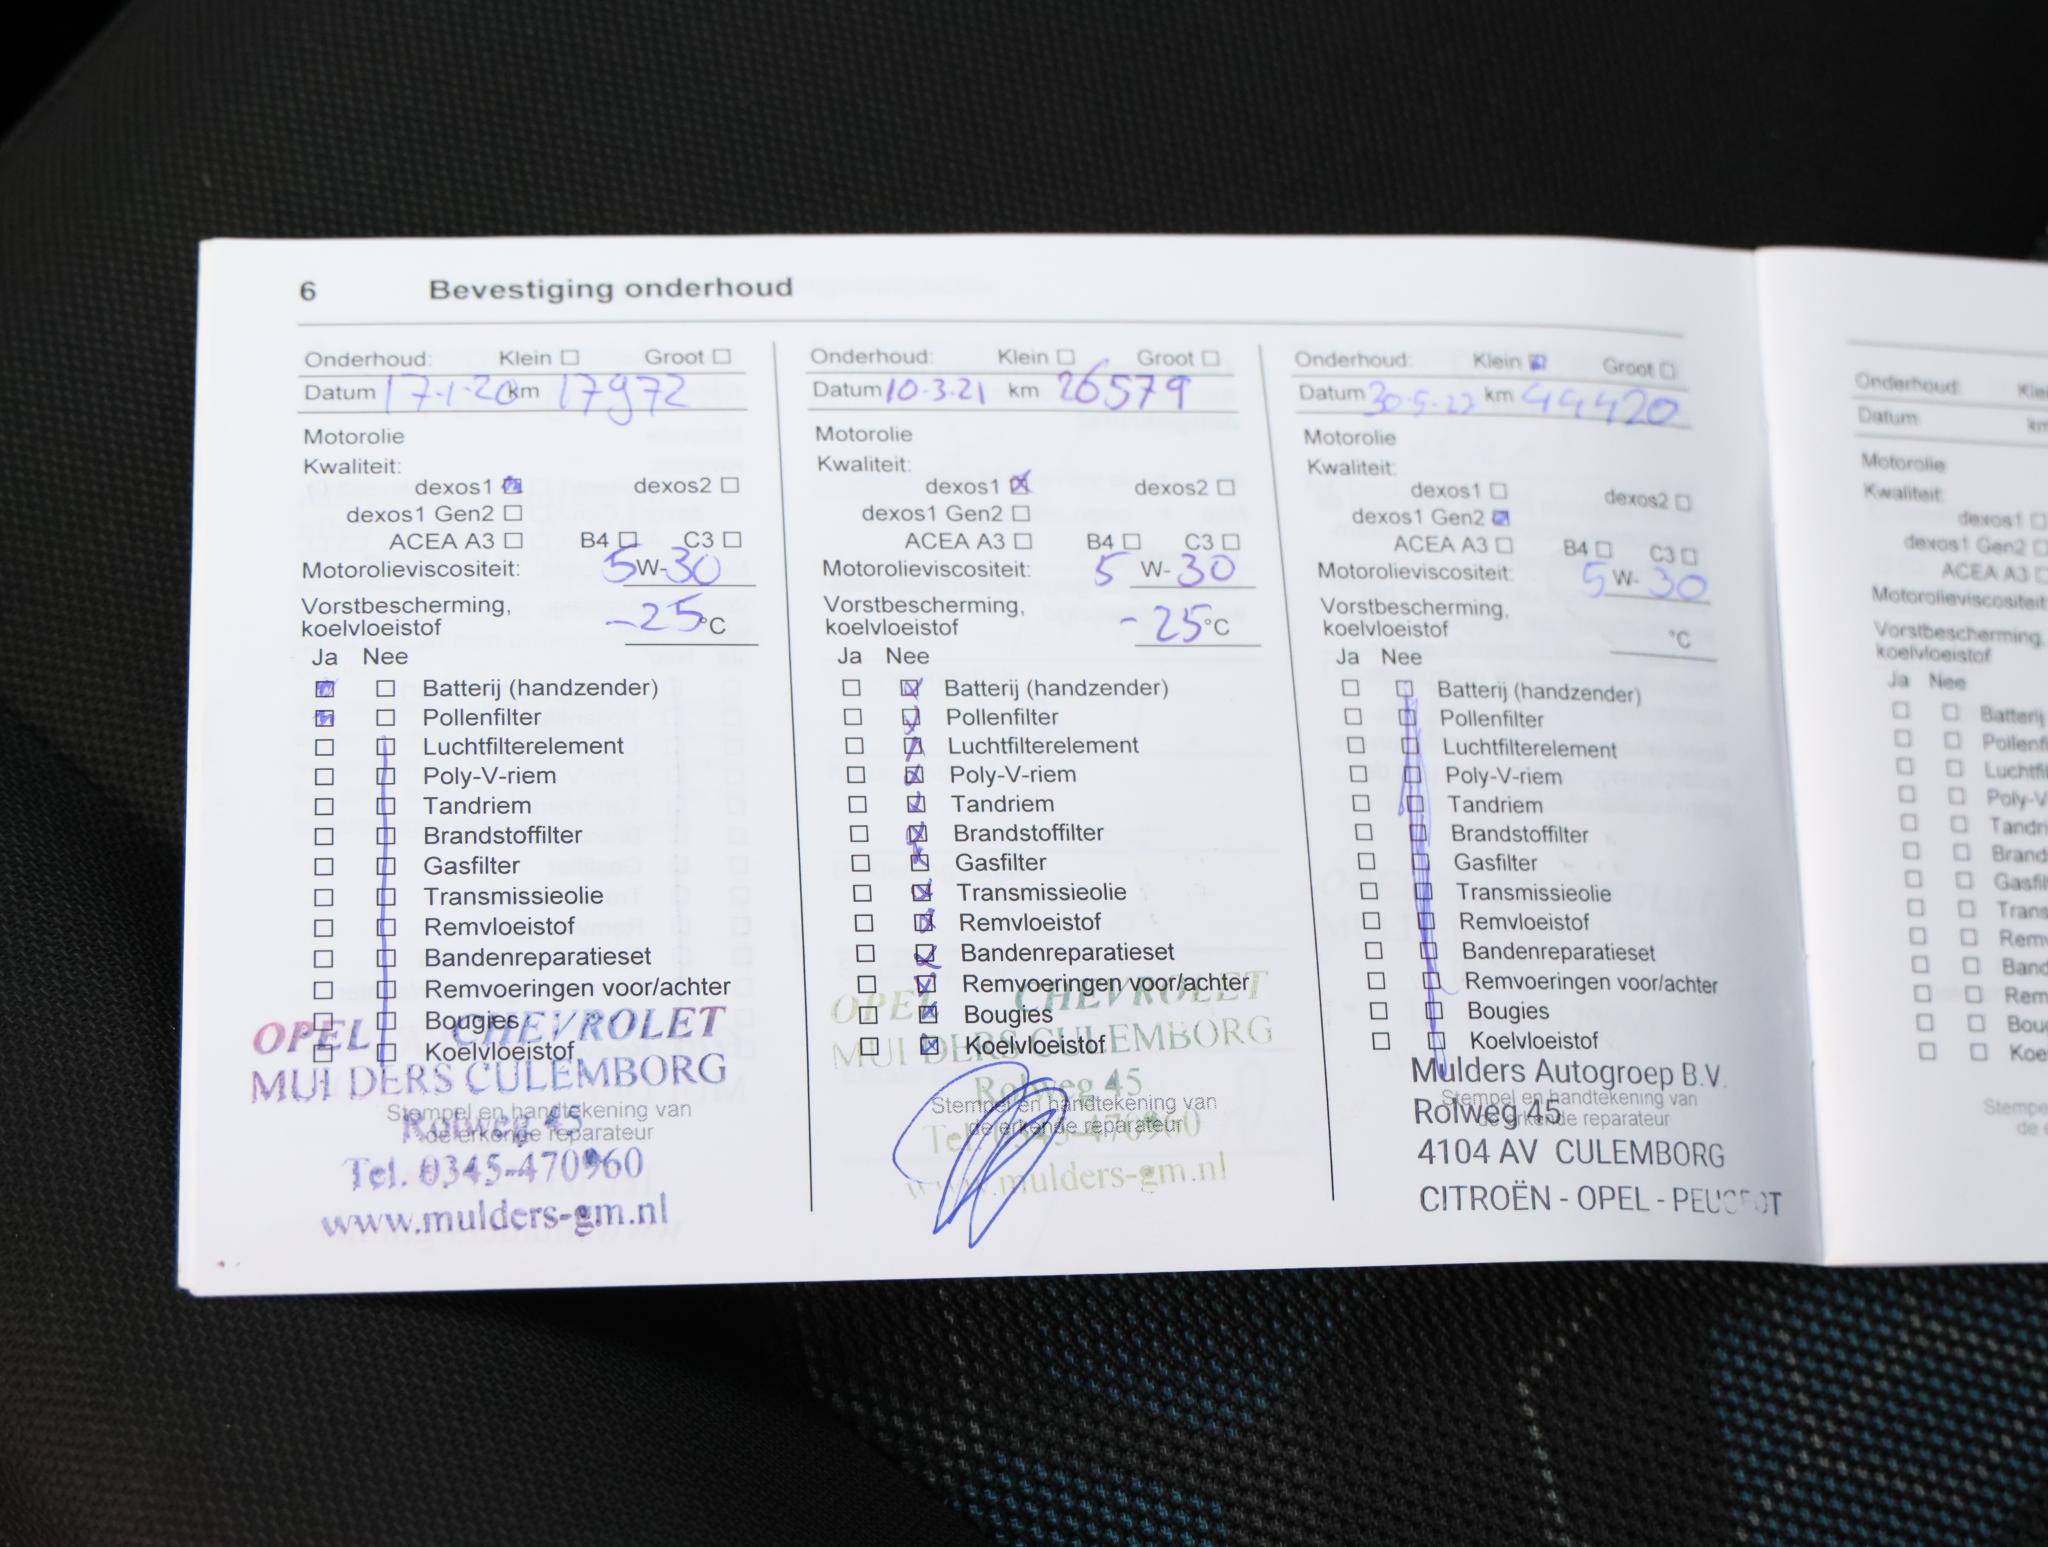 6 Bevestiging onderhoud
Onderhoud: Klein Groot
Datum 17-1-20 km 17972
Motorolie
Kwaliteit:
dexos1 dexos2
dexos1 Gen2
ACEA A3 B4 C3
Motorolieviscositeit: 5 W- 30
Vorstbescherming,
koelvloeistof -25 °C
Ja Nee
Batterij (handzender)
Pollenfilter
Luchtfilterelement
Poly-V-riem
Tandriem
Brandstoffilter
Gasfilter
Transmissieolie
Remvloeistof
Bandenreparatieset
Remvoeringen voor/achter
Bougies
Koelvloeistof
OPEL CHEVROLET
MULDERS CULEMBORG
Stempel en handtekening van
de erkende reparateur
Rolweg 45
Tel. 0345-470960
www.mulders-gm.nl
Onderhoud: Klein Groot
Datum 10-3-21 km 26579
Motorolie
Kwaliteit:
dexos1 dexos2
dexos1 Gen2
ACEA A3 B4 C3
Motorolieviscositeit: 5 W- 30
Vorstbescherming,
koelvloeistof -25 °C
Ja Nee
Batterij (handzender)
Pollenfilter
Luchtfilterelement
Poly-V-riem
Tandriem
Brandstoffilter
Gasfilter
Transmissieolie
Remvloeistof
Bandenreparatieset
Remvoeringen voor/achter
Bougies
Koelvloeistof
OPEL CHEVROLET
MULDERS CULEMBORG
Rolweg 45
Stempel en handtekening van
de erkende reparateur
Tel. 0345-470960
www.mulders-gm.nl
Onderhoud: Klein Groot
Datum km 44420
Motorolie
Kwaliteit:
dexos1 dexos2
dexos1 Gen2
ACEA A3 B4 C3
Motorolieviscositeit: 5 W- 30
Vorstbescherming,
koelvloeistof °C
Ja Nee
Batterij (handzender)
Pollenfilter
Luchtfilterelement
Poly-V-riem
Tandriem
Brandstoffilter
Gasfilter
Transmissieolie
Remvloeistof
Bandenreparatieset
Remvoeringen voor/achter
Bougies
Koelvloeistof
Mulders Autogroep B.V.
Stempel en handtekening van
Rolweg 45
de erkende reparateur
4104 AV CULEMBORG
CITROËN - OPEL - PEUGEOT
Onderhoud: Kle
Datum km
Motorolie
Kwaliteit:
dexos1
dexos1 Gen2
ACEA A3
Motorolieviscositeit
Vorstbescherming,
koelvloeistof
Ja Nee
Batterij
Pollenf
Luchtfi
Poly-V
Tandri
Brand
Gasfil
Trans
Remv
Band
Rem
Bou
Koe
Stempe
de e